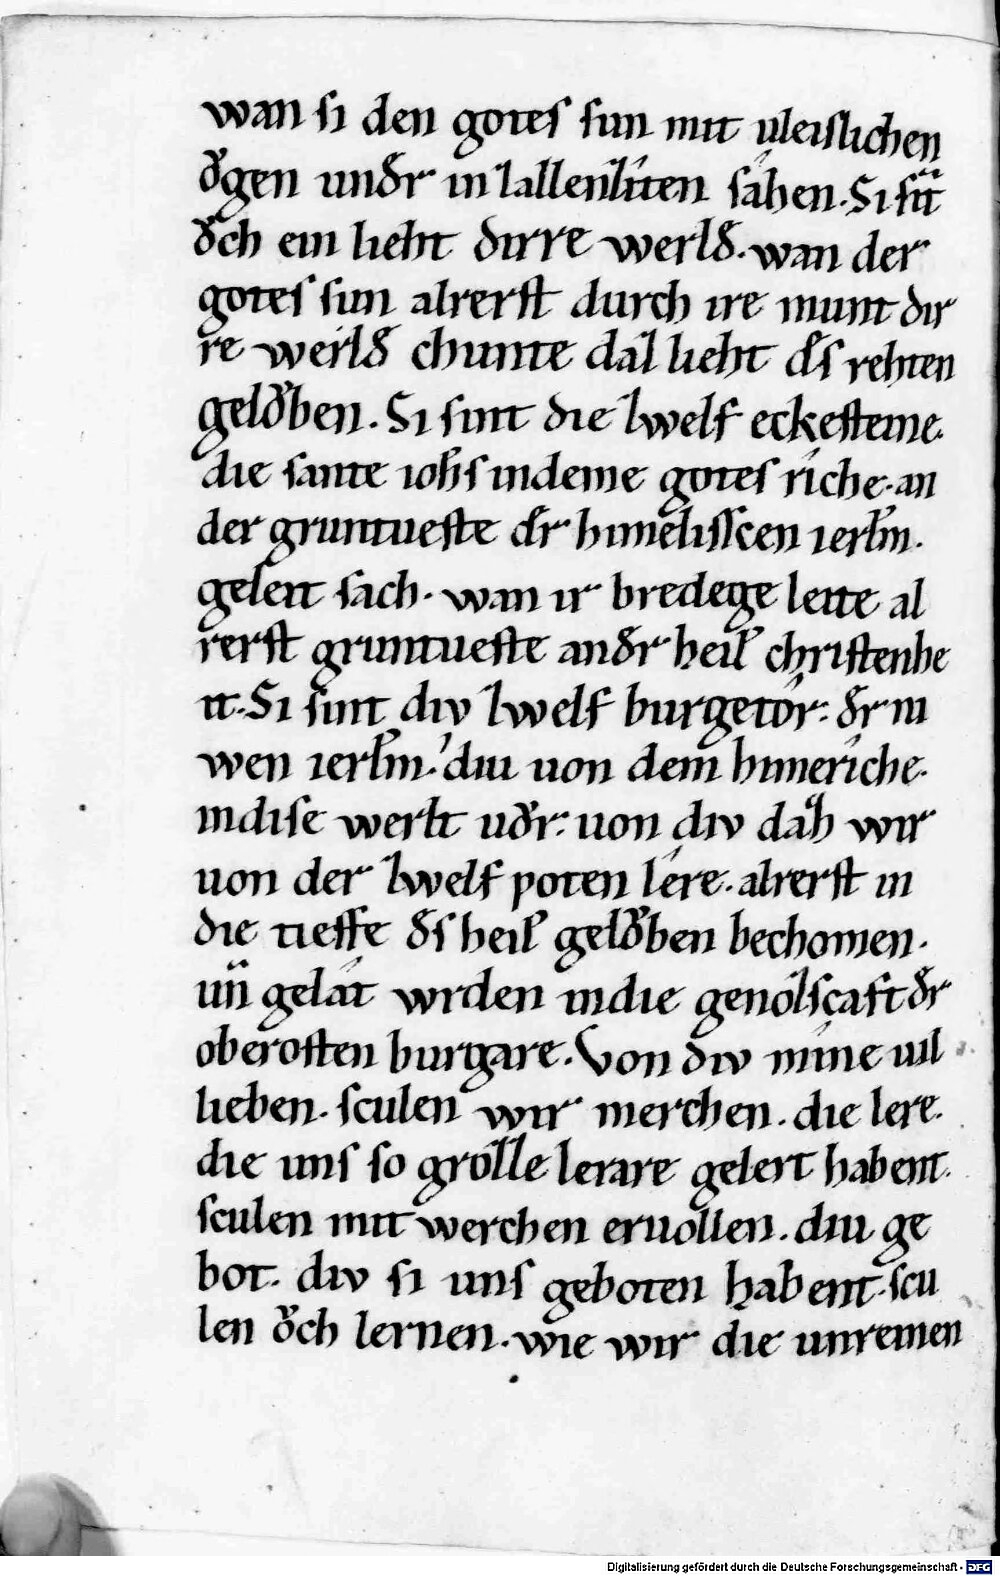 wan ſi den goteſ ſun mit vleiſlichen
oͮgen undͤr in ʒallenʒiten ſahen. Si ſīt
oͮch ein lieht dirre werlð. wan der
goteſ ſun alrerſt durch ire munt dir
re werlð chunte daʒ lieht dͤſ rehten
geloͮben. Si ſint die ʒwelf eckeſteine.
die ſante ioh̄ſ indeme goteſ riche. an
der gruntueſte dͤr himeliſſcen ierl̄m.
geleit ſach. wan ir bredege leite al
rerſt gruntueſte andͤr heil᷒ chriſtenhe
it. Si ſint div ʒwelf burgetor. dͤr ni
wen ierl̄m. diu uon dem himeriche.
indiſe werlt uͦðr. uon div daʒ wir
uon der ʒwelf poten lere. alrerſt in
die tieffe dͤſ heil᷒ geloͮben bechomen.
un̄ gelat wrden indie genoʒſcaft dͤr
oberoſten burgare. Von div mine uil
lieben. ſculen wir merchen. die lere.
die unſ ſo groʒʒe lerare gelert habent.
ſculen mit werchen eruollen. diu ge
bot. div ſi unſ geboten habent. ſcu
len oͮch lernen. wie wir die unreinen
Digitalisierung gefördert durch die Deutsche Forschungsgemeinschaft - DFG